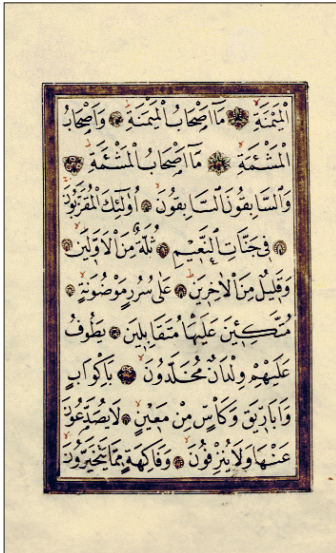 الْمَيْمَنَةِ مَآ اَصْحَابُ الْمَيْمَنَةِ وَاَصْحَابُ
الْمَشْئَمَةِ مَآ اَصْحَابُ الْمَشْئَمَةِ
وَالسَّابِقُونَ السَّابِقُونَ اُولٰٓئِكَ الْمُقَرَّبُونَ
فِى جَنَّاتِ النَّعِيمِ ثُلَّةٌ مِنَ الْاَوَّلِينَ
وَقَلِيلٌ مِنَ الْاٰخِرِينَ عَلٰى سُرُرٍ مَوْضُونَةٍ
مُتَّكِئِينَ عَلَيْهَا مُتَقَابِلِينَ يَطُوفُ
عَلَيْهِمْ وِلْدَانٌ مُخَلَّدُونَ بِاَكْوَابٍ
وَاَبَارِيقَ وَكَاْسٍ مِنْ مَعِينٍ لَا يُصَدَّعُونَ
عَنْهَا وَلَا يُنْزِفُونَ وَفَاكِهَةٍ مِمَّا يَتَخَيَّرُونَ